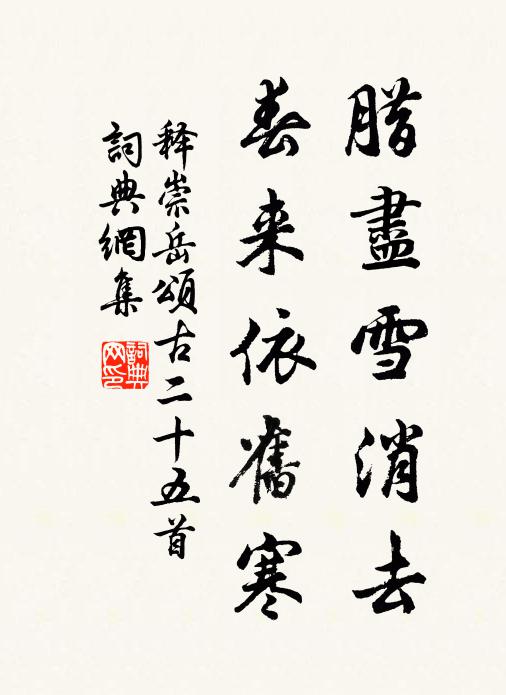 腊盡雪消去
春来依舊寒
释崇岳頌古二十五首
詞典網集
詞典
网印